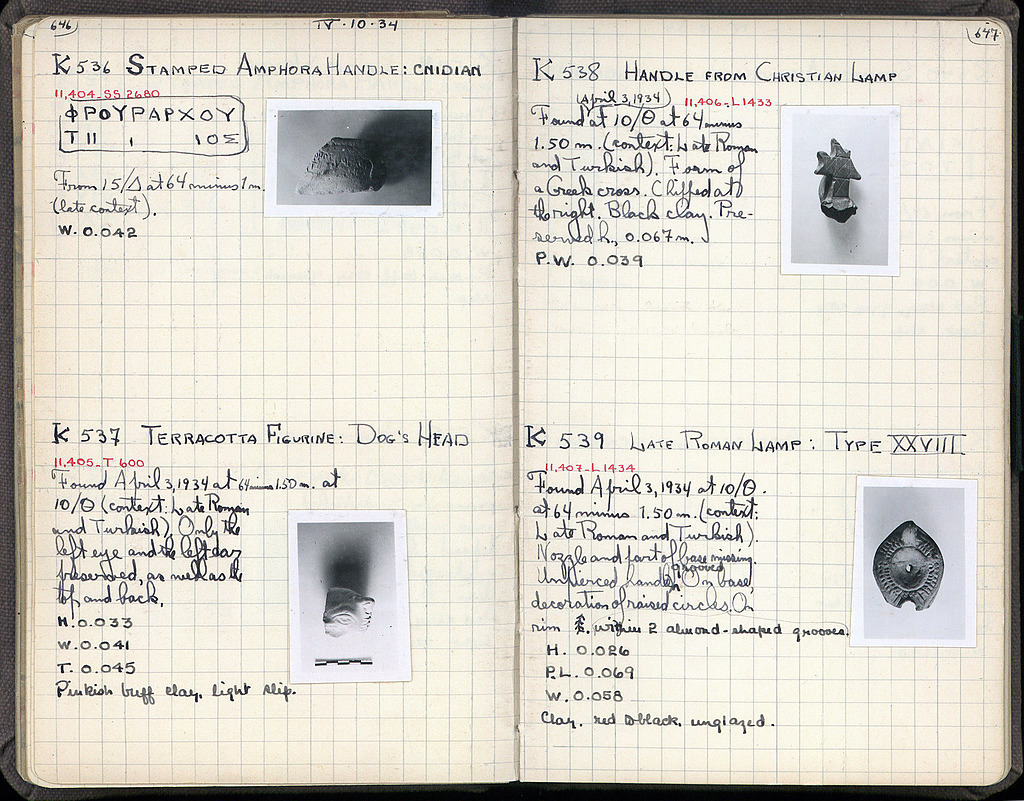 646
IV·10·34
K 536 STAMPED AMPHORA HANDLE: CNIDIAN
11,404-SS 2680
ΦΡΟΥΡΑΡΧΟΥ
ΤΙΙ Ι ΙΟΣ
From 15/Δ at 64 minus 1 m.
(late context).
W. 0.042
K 537 TERRACOTTA FIGURINE: DOG'S HEAD
11,405-T 600
Found April 3, 1934 at 64 minus 1.50 m. at
10/Θ (context: Late Roman
and Turkish). Only the
left eye and the left ear
preserved, as well as the
top and back.
H. 0.033
W. 0.041
T. 0.045
Pinkish buff clay, light slip.
647
K 538 HANDLE FROM CHRISTIAN LAMP
(April 3, 1934) 11,406-L1433
Found at 10/Θ at 64 minus
1.50 m. (context: Late Roman
and Turkish). Form of
a Greek cross. Chipped at
the right. Black clay. Pre-
served h., 0.067 m.
P.W. 0.039
K 539 LATE ROMAN LAMP: TYPE XXVIII
11,407-L1434
Found April 3, 1934 at 10/Θ.
at 64 minus 1.50 m. (context:
Late Roman and Turkish).
Nozzle and part of base missing.
Unpierced, grooved handle. On base,
decoration of raised circles. On
rim within 2 almond-shaped grooves.
H. 0.026
P.L. 0.069
W. 0.058
Clay, red to black, unglazed.